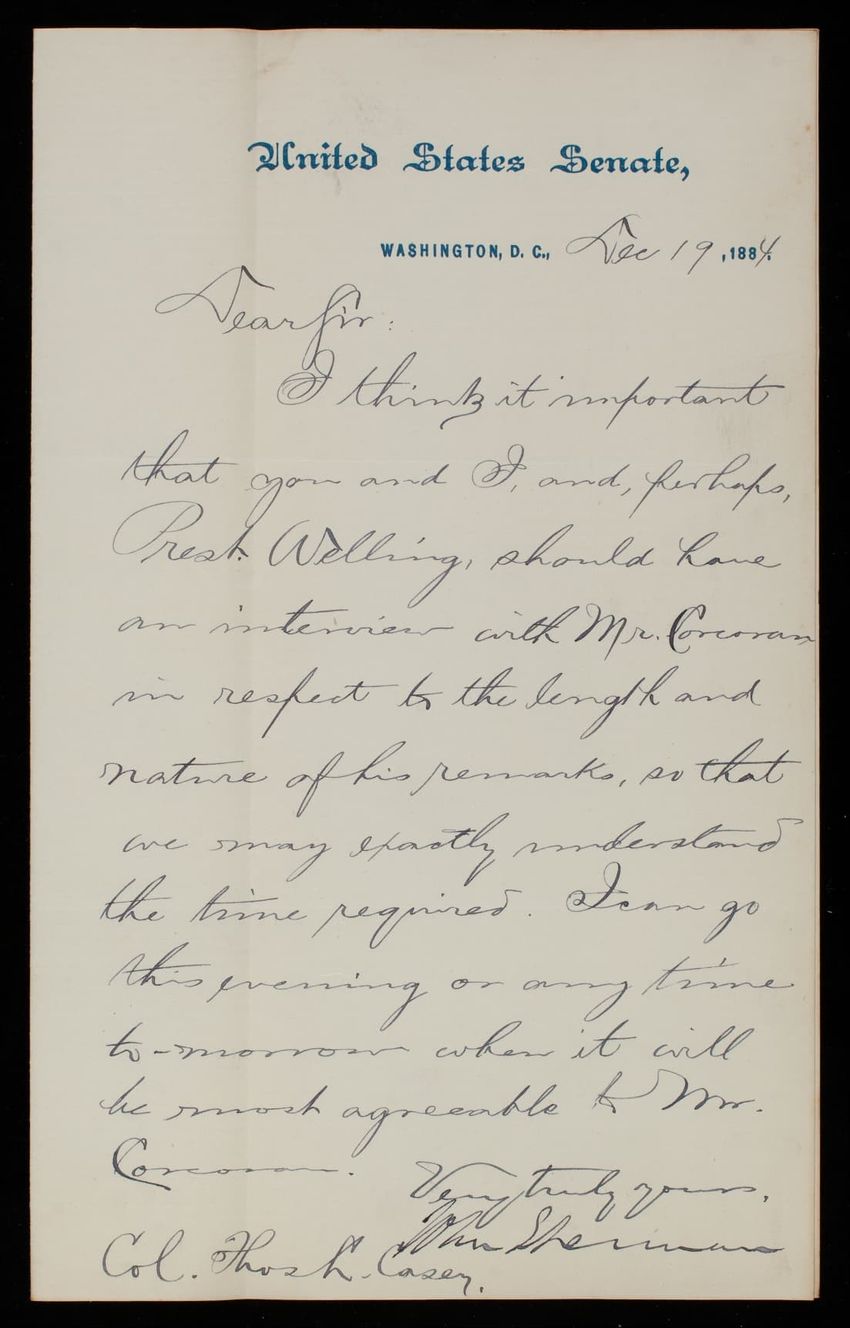 United States Senate,
WASHINGTON, D. C., Dec 19, 1884.
Dear Sir:
I think it important
that you and I, and, perhaps,
Prest. Welling, should have
an interview with Mr. Corcoran
in respect to the length and
nature of his remarks, so that
we may exactly understand
the time required. I can go
this evening or any time
to-morrow when it will
be most agreeable to Mr.
Corcoran.
Very truly yours,
John Sherman
Col. Thos L. Casey.